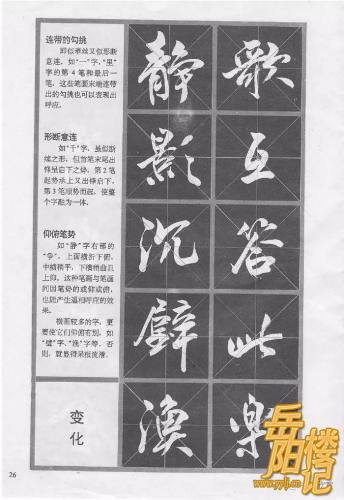 连带的勾挑
即似牵丝又似形断
意连，如“一”字、“里”
字的第4笔和最后一
笔，这些笔画末端连带
出的勾挑也可以表现出
呼应。
形断意连
如“千”字，虽似断
续之形，但首笔末尾出
锋呈启下之势，第2笔
起势承上又出锋启下，
第3笔顺势而起，使整
个字融为一体。
仰俯笔势
如“静”字右部的
“争”，上面横折下俯，
中横稍平，下横稍曲且
上仰，这种笔画与笔画
间因笔势的或仰或俯，
也能产生遥相呼应的效
果。
横画较多的字，更
要使它们仰俯有别，如
“璧”字、“渔”字等，否
则，就显得呆板流滑。
变
化
静 歌
影 互
沉 答
璧 此
渔 乐
26
岳阳楼记
www.yylj.cn